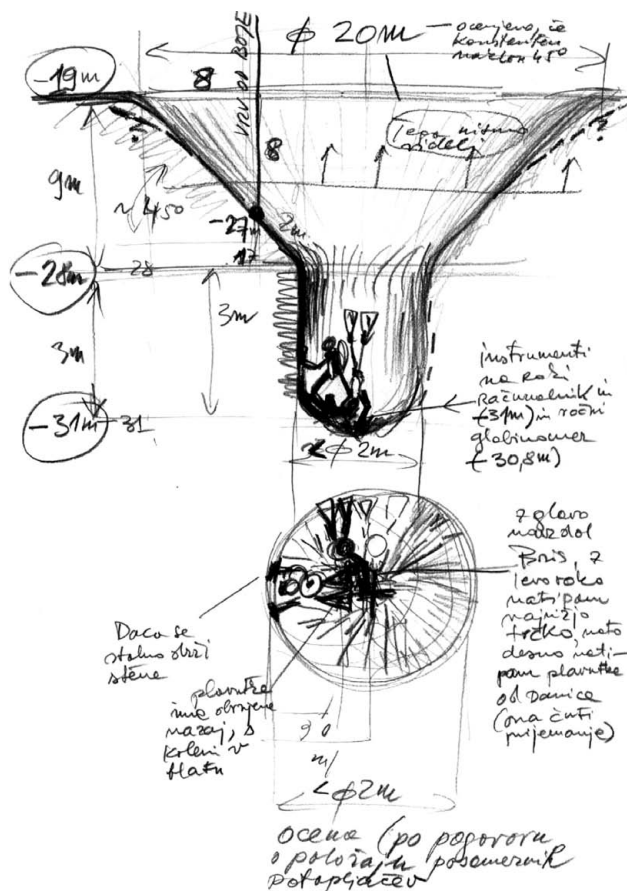 ϕ 20m
ocenjeno, če
konstanten
naklon 45°
-19m
8
VRV OD BOJE
8
tega nismo
videli
?
?
9m
~450
-27m
2m
17
-28m
28
3m
3m
-31m
-31
< ϕ 2m
instrumenti
na roki
računalnik in
(-31m) in ročni
globinomer
(-30,8m)
z glavo
navzdol
Boris, z
levo roko
natipam
najnižjo
točko, nato
desno nati-
pam plavutke
od Danice
(ona čuti
prijemanje)
Daca se
stalno drži
stene
plavutke
ima obrnjene
nazaj, s
koleni v
blatu
90
m
< ϕ 2m
ocena (po pogovoru
o položaju posameznih
potapljačev